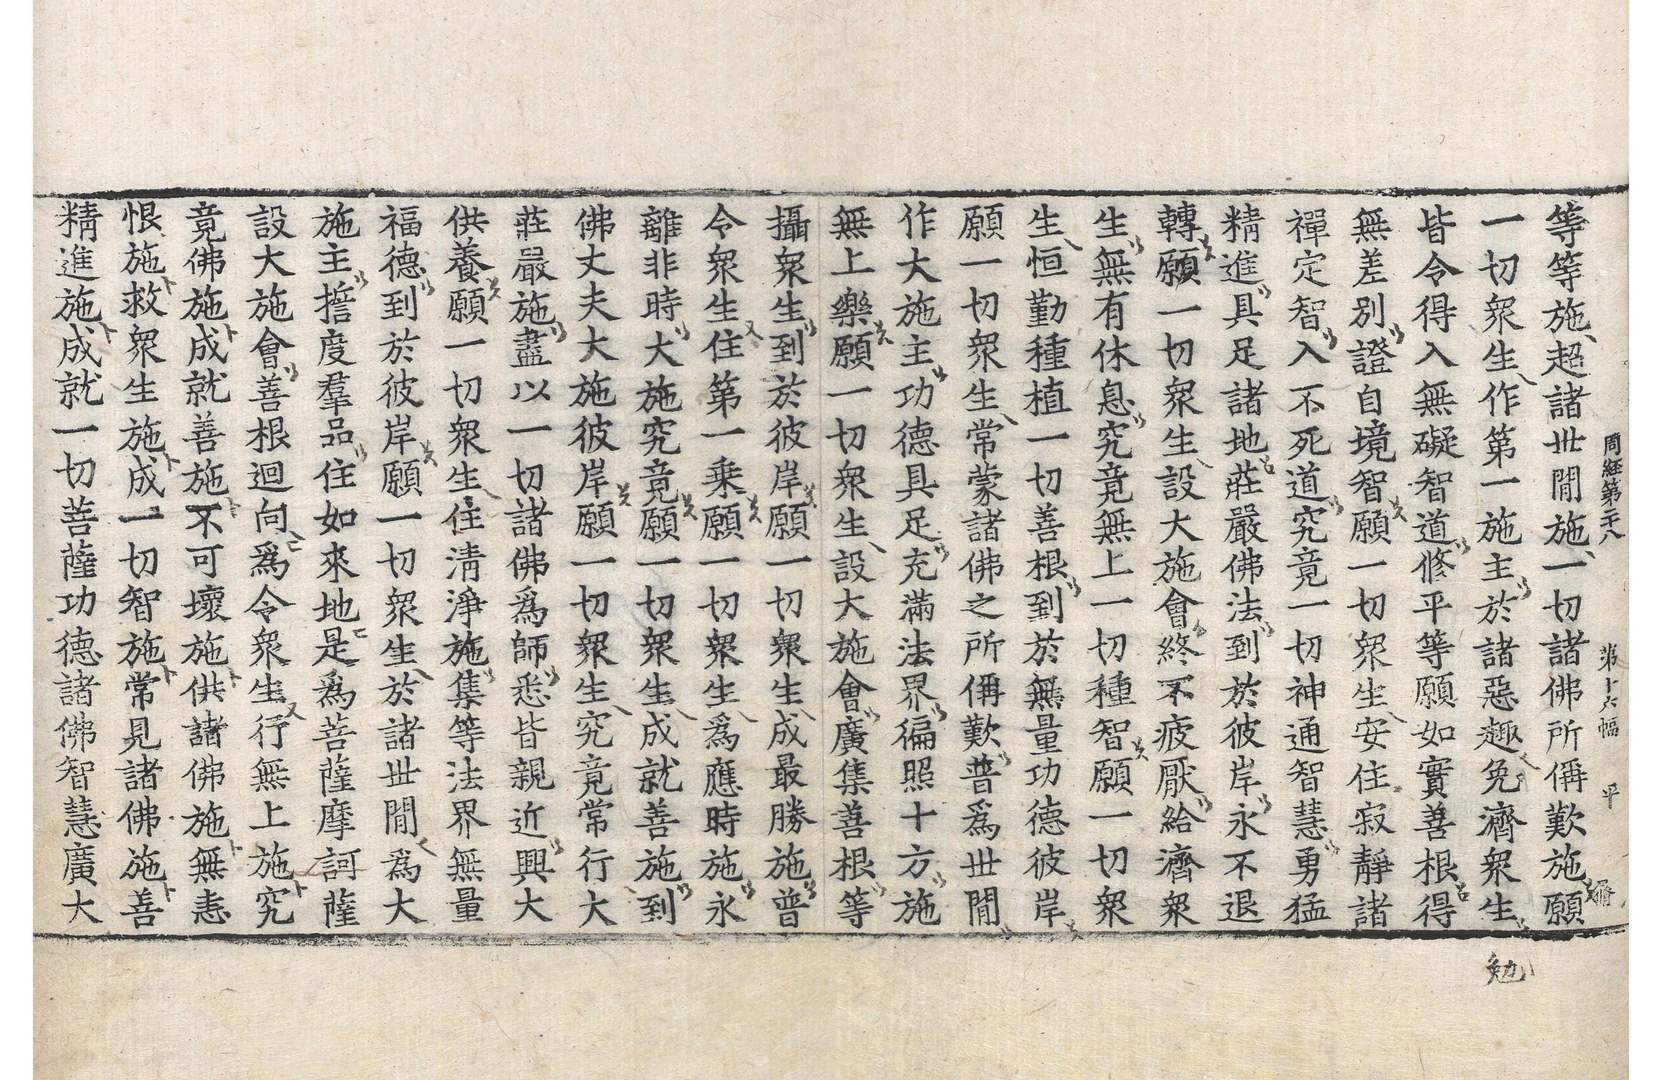 周經第二十八 第十六幅 平
等等施超諸世間施一切諸佛所偁歎施願
一切衆生作第一施主於諸惡趣免濟衆生
皆令得入無礙智道修平等願如實善根得
無差別證自境智願一切衆生安住寂靜諸
禪定智入不死道究竟一切神通智慧勇猛
精進具足諸地莊嚴佛法到於彼岸永不退
轉願一切衆生設大施會終不疲厭給濟衆
生無有休息究竟無上一切種智願一切衆
生恒勤種植一切善根到於無量功德彼岸
願一切衆生常蒙諸佛之所偁歎普爲世間
作大施主功德具足充滿法界徧照十方施
無上樂願一切衆生設大施會廣集善根等
攝衆生到於彼岸願一切衆生成最勝施普
令衆生住第一乘願一切衆生爲應時施永
離非時大施究竟願一切衆生成就善施到
佛丈夫大施彼岸願一切衆生究竟常行大
莊嚴施盡以一切諸佛爲師悉皆親近興大
供養願一切衆生住淸淨施集等法界無量
福德到於彼岸願一切衆生於諸世間爲大
施主誓度羣品住如來地是爲菩薩摩訶薩
設大施會善根迴向爲令衆生行無上施究
竟佛施成就善施不可壞施供諸佛施無恚
恨施救衆生施成一切智施常見諸佛施善
精進施成就一切菩薩功德諸佛智慧廣大
勉